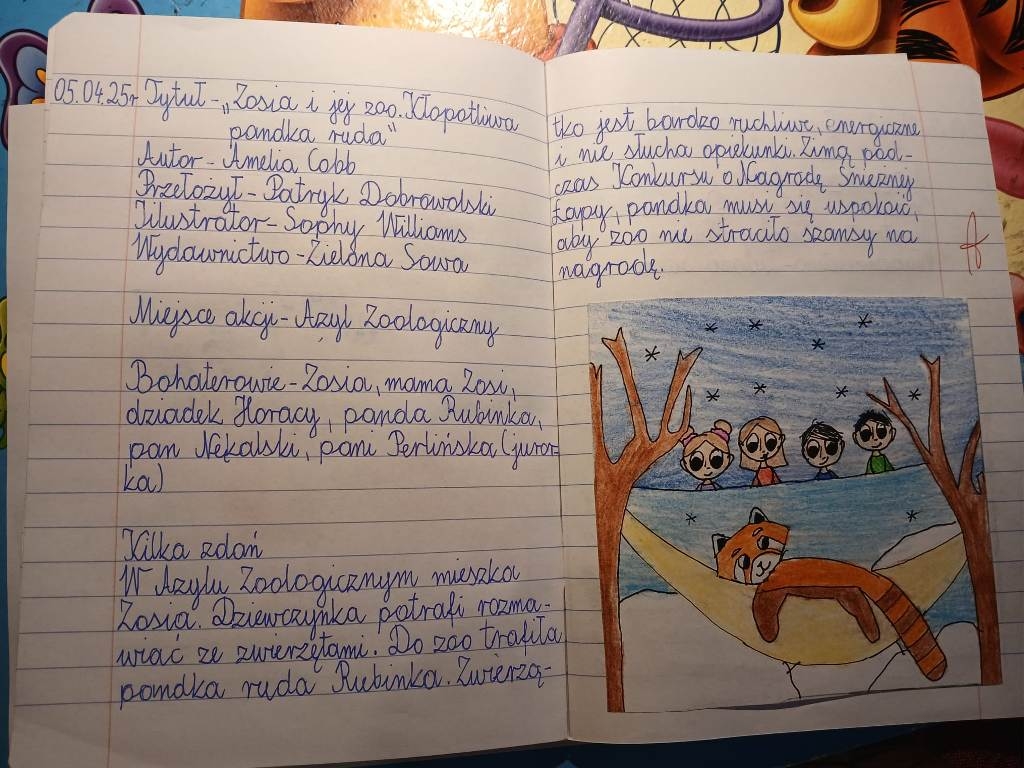 05.04.25r Tytuł - „Zosia i jej zoo. Kłopotliwa
pandka ruda"
Autor - Amelia Cobb
Przełożył - Patryk Dobrowolski
Ilustrator - Sophy Williams
Wydawnictwo - Zielona Sowa
Miejsce akcji - Azyl Zoologiczny
Bohaterowie - Zosia, mama Zosi,
dziadek Horacy, panda Rubinka,
pan Nękalski, pani Perlińska (juror-
ka)
Kilka zdań
W Azylu Zoologicznym mieszka
Zosia. Dziewczynka potrafi rozma-
wiać ze zwierzętami. Do zoo trafiła
pandka ruda Rubinka. Zwierzą-
tko jest bardzo ruchliwe, energiczne
i nie słucha opiekunki. Zimą pod-
czas Konkursu o Nagrodę Śnieżnej
Łapy, pandka musi się uspokoić,
aby zoo nie straciło szansy na
nagrodę.